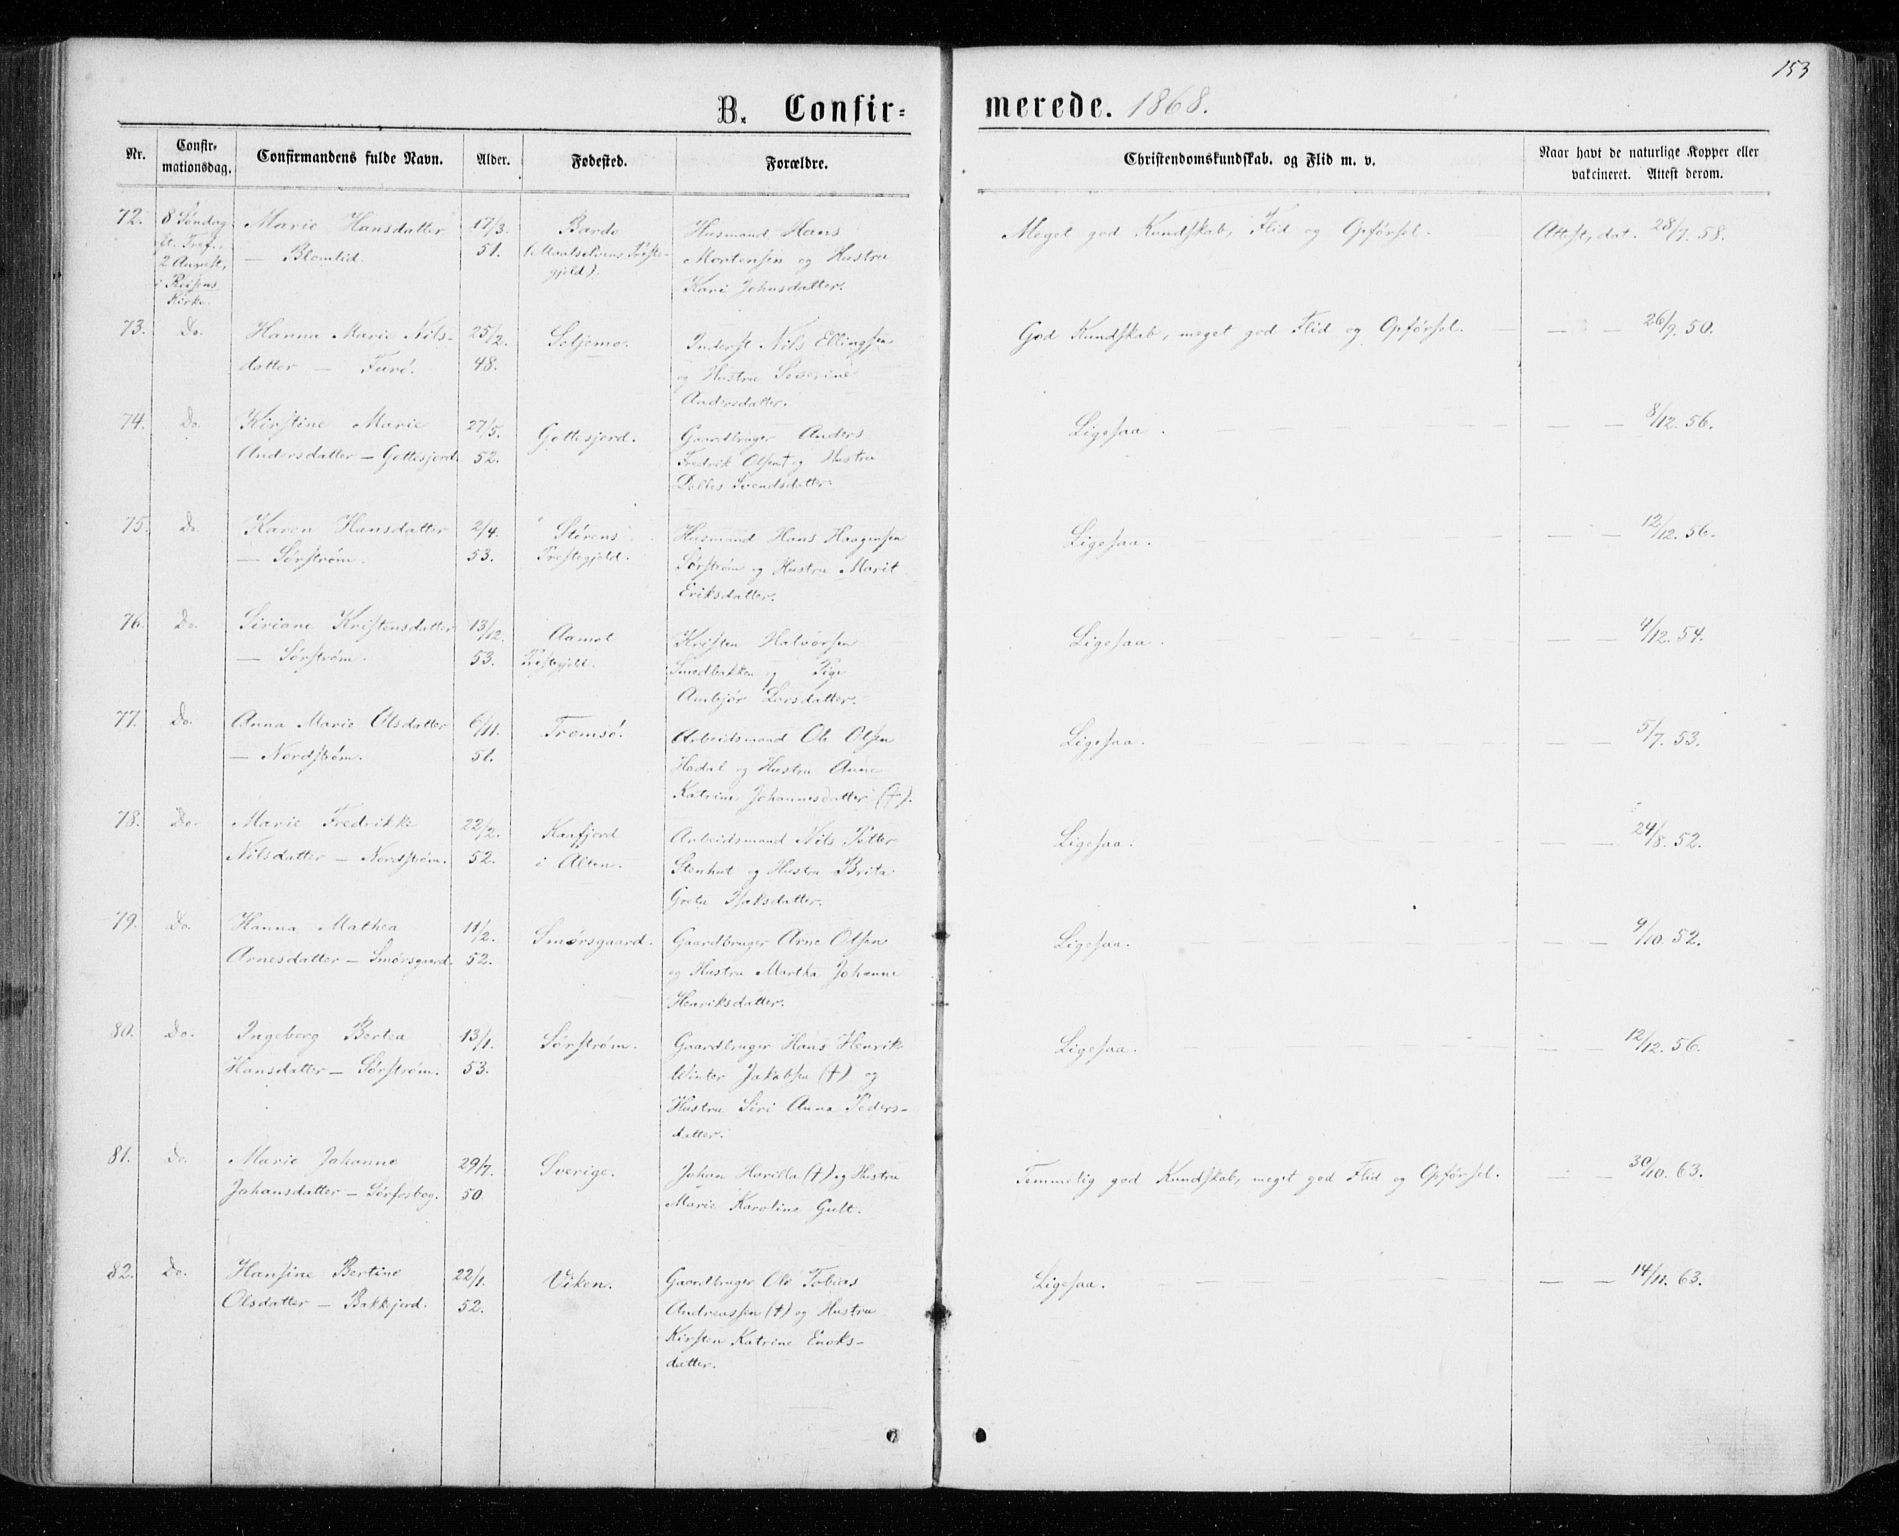 153
B. Confirmerede. 1868.
Nr. Confirmationsdag. Confirmandens fulde Navn. Alder. Fødested. Forældre. Christendomskundskab, og Flid m. v. Naar havt de naturlige Kopper eller vakcineret. Attest derom.
72. 8 Søndag Marie Hansdatter 17/3. Bardo Husmand Hans Meget god Kundskab, Flid og Opførsel. — Attest, dat. 28/7. 58.
et. Tref., — Blomlid. 51. (Maalselvens Præste- Mortensen og Hustru
2 August, gjeld). Kari Johnsdatter.
i Reisens
Kirke.
73. Do. Hanna Marie Nils- 25/2. Soljemo. Inderst Nils Ellingsen God Kundskab, meget god Flid og Opførsel. — — — 26/9. 50.
datter — Furø. 48. og Hustru Severine
Andersdatter.
74. Do. Kirstine Marie 27/5. Gottesjord. Gaardbruger Anders Ligesaa. — — 8/12. 56.
Andersdatter — Gottesjord. 52. Fredrik Olsen og Hustru
Dolles Svendsdatter.
75. Do. Karen Hansdatter 2/4. Størens Husmand Hans Haagensen Ligesaa. — — 12/12. 56.
— Sørstrøm. 53. Præstegjeld. Sørstrøm og Hustru Marit
Eriksdatter.
76. Do. Siriane Kristensdatter 13/12. Aamot Kristen Halvorsen Ligesaa. — — 4/12. 54.
— Sørstrøm. 53. Præstegjeld. Smedbakken og Pige
Ambjør Larsdatter.
77. Do. Anna Marie Olsdatter 6/11. Tromsø. Arbeidsmand Ole Olsen Ligesaa. — — 5/7. 53.
— Nordstrøm. 51. Hodal og Hustru Anne
Katrine Johannesdatter (†).
78. Do. Marie Fredrikke 22/2. Kaafjord Arbeidsmand Nils Petter Ligesaa. — — 24/8. 52.
Nilsdatter — Nordstrøm. 52. i Alten. Stenhut og Hustru Brita
Greta Isaksdatter.
79. Do. Hanna Mathea 11/2. Smørsgaard. Gaardbruger Arne Olsen Ligesaa. — — 9/10. 52.
Arnesdatter — Smørsgaard. 52. og Hustru Martha Johanne
Henriksdatter.
80. Do. Ingeborg Bertea 13/1. Sørstrøm. Gaardbruger Hans Henrik Ligesaa. — — 12/12. 56.
Hansdatter — Sørstrøm. 53. Winter Jakobsen (†) og
Hustru Siri Anna Peders-
datter.
81. Do. Marie Johanne 29/7. Sverige. Johan Harilla (†) og Hustru Temmelig god Kundskab, meget god Flid og Opførsel. — — 30/10. 63.
Johansdatter — Sørfosbog. 50. Marie Karoline Gult.
82. Do. Hansine Bertine 22/1. Viken. Gaardbruger Ole Tobias Ligesaa. — — 14/11. 63.
Olsdatter — Bakkejord. 52. Andreassen (†) og Hustru
Kirsten Katrine Enoks-
datter.